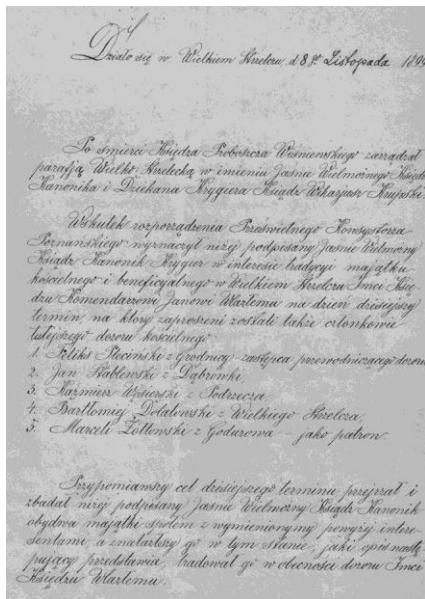 Działo się w Wielkiem Strzelczu, d. 8go Listopada 189
Po śmierci Księdza Proboszcza Wiśniewskiego zarządzał
parafją Wielko-Strzelecką w imieniu Jaśnie Wielmożnego Księdz
Kanonika i Dziekana Krygiera Ksiądz Wikarjusz
Wskutek rozporządzenia Prześwietnego Konsystorza
Poznańskiego wyznaczył niżej podpisany Jaśnie Wielmożny
Ksiądz Kanonik Krygier w interesie tradycyi majątku
kościelnego i beneficyalnego w Wielkiem Strzelczu Imci Księ-
dzu Komendarzowi Janowi Wartemu na dzień dzisiejszy
termin, na który zaproszeni zostali także członkowie
tutejszego dozoru kościelnego
1. Feliks Pleciński z Grodnicy zastępca przewodniczącego dozoru
2. Jan Stablewski z Dąbrówki
3. Kaźmierz z Podrzecza
4. Bartłomiej z Wielkiego Strzelcza,
5. Marceli Żółtowski z Godurowa – jako patron.
Przypomniawszy cel dzisiejszego terminu przejrzał i
zbadał niżej podpisany Jaśnie Wielmożny Ksiądz Kanonik
obydwa majątki społem z wymienionymi powyżej intere-
sentami a znalazłszy go w tym stanie, jaki opis nastę-
pujący przedstawia, tradował go w obecności dozoru Imci
Księdzu Wartemu.